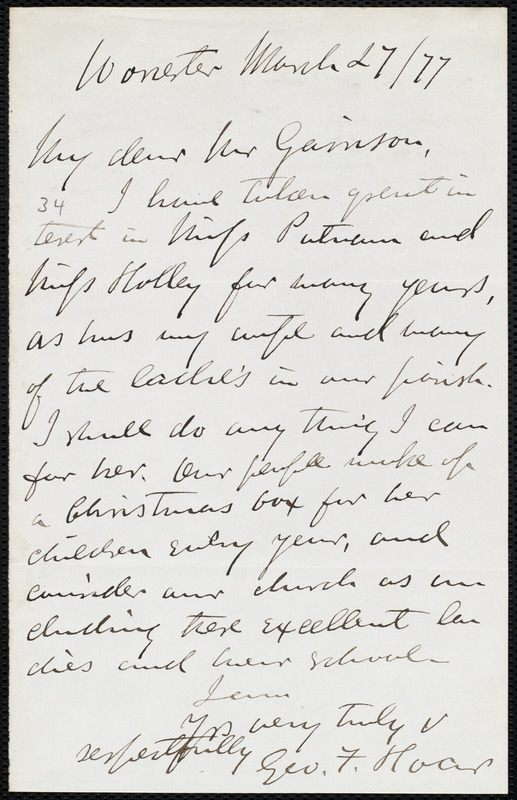 Worcester March 27/77
My dear Mr Garrison,
34 I have taken great in
terest in Miss Putnam and
Miss Holley for many years,
as has my wife and many
of the ladies in our parish.
I shall do any thing I can
for her. Our people make up
a Christmas box for her
children every year, and
consider our church as in
cluding these excellent la
dies and their school.
I am
Yrs very truly &
respectfully Geo. F. Hoar